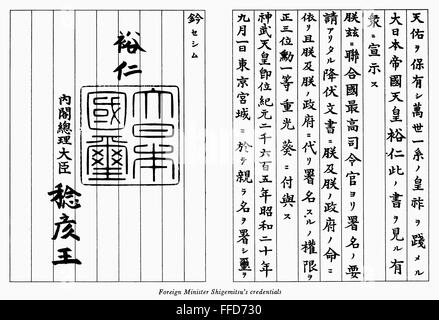 天佑ヲ保有シ萬世一系ノ皇祚ヲ踐メル
大日本帝國天皇裕仁此ノ書ヲ見ル有
衆ニ宣示ス
朕茲ニ聯合國最高司令官ヨリ署名ノ要
請アリタル降伏文書ニ朕及朕ノ政府ノ命ニ
依リ且朕及朕ノ政府ニ代リ署名スルノ權限ヲ
正三位勳一等重光葵ニ付與ス
神武天皇卽位紀元二千六百五年昭和二十年
九月一日東京宮城ニ於テ親ラ名ヲ署シ璽ヲ
鈐セシム
裕仁
大日本
國璽
內閣總理大臣
稔彥王
Foreign Minister Shigemitsu's credentials
alamy stock photo
FFD730